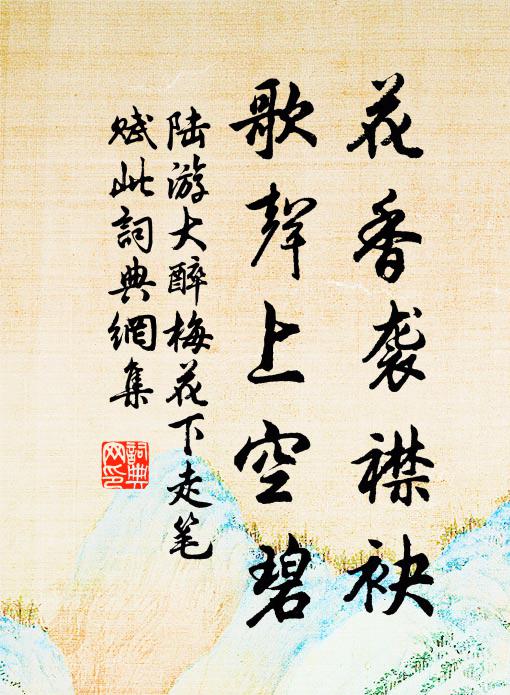 花香袭襟袂
歌聲上空碧
陆游大醉梅花下走笔
赋此詞典網集
詞典网印